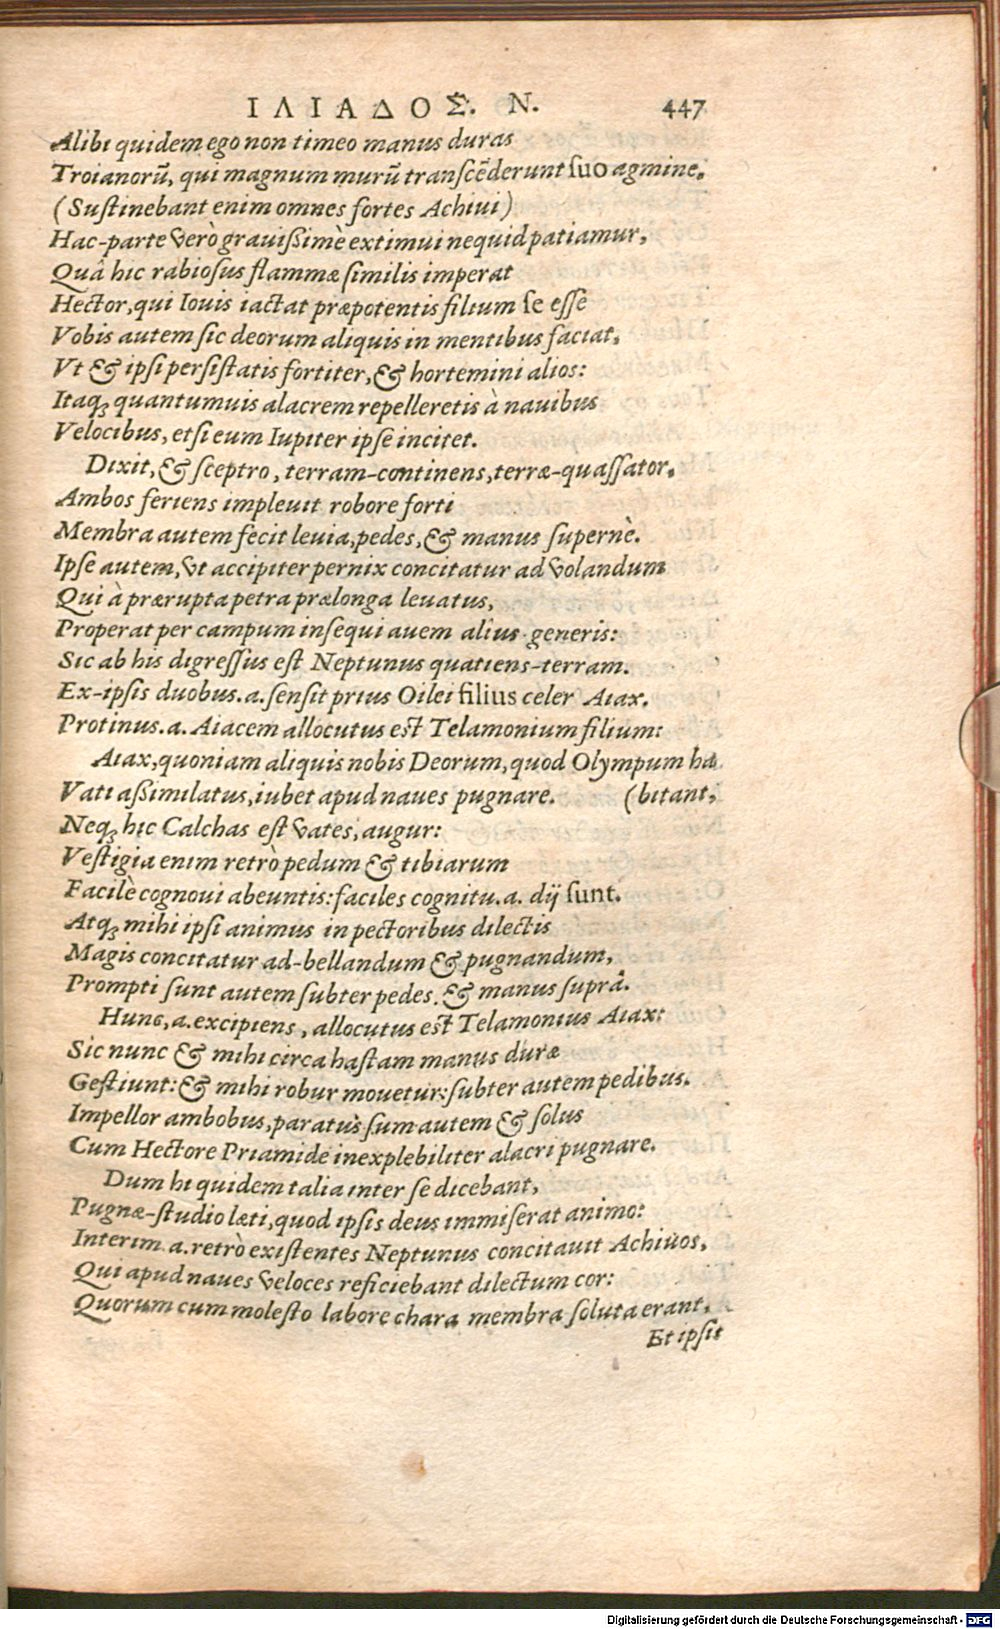 ΙΛΙΑΔΟΣ. Ν. 447
Alibi quidem ego non timeo manus duras
Troianorū, qui magnum murū transcēderunt suo agmine.
(Sustinebant enim omnes fortes Achiui)
Hac-parte verò grauißimè extimui nequid patiamur,
Quâ hic rabiosus flammæ similis imperat
Hector, qui Iouis iactat præpotentis filium se esse
Vobis autem sic deorum aliquis in mentibus faciat,
Vt & ipsi persistatis fortiter, & hortemini alios:
Itaq; quantumuis alacrem repelleretis à nauibus
Velocibus, etsi eum Iupiter ipse incitet.
Dixit, & sceptro, terram-continens, terræ-quassator.
Ambos feriens impleuit robore forti
Membra autem fecit leuia, pedes, & manus supernè.
Ipse autem, vt accipiter pernix concitatur ad volandum
Qui à prærupta petra prælonga leuatus,
Properat per campum insequi auem alius generis:
Sic ab his digressus est Neptunus quatiens-terram.
Ex-ipsis duobus .a. sensit prius Oilei filius celer Aiax.
Protinus .a. Aiacem allocutus est Telamonium filium:
Aiax, quoniam aliquis nobis Deorum, quod Olympum ha
Vati aßimilatus, iubet apud naues pugnare. (bitant,
Neq; hic Calchas est vates, augur:
Vestigia enim retrò pedum & tibiarum
Facilè cognoui abeuntis: faciles cognitu .a. dij sunt.
Atq; mihi ipsi animus in pectoribus dilectis
Magis concitatur ad-bellandum & pugnandum,
Prompti sunt autem subter pedes, & manus suprâ.
Hunc, .a. excipiens, allocutus est Telamonius Aiax:
Sic nunc & mihi circa hastam manus duræ
Gestiunt: & mihi robur mouetur: subter autem pedibus.
Impellor ambobus, paratus sum autem & solus
Cum Hectore Priamide inexplebiliter alacri pugnare.
Dum hi quidem talia inter se dicebant,
Pugnæ-studio læti, quod ipsis deus immiserat animo:
Interim .a. retrò existentes Neptunus concitauit Achiuos,
Qui apud naues veloces reficiebant dilectum cor:
Quorum cum molesto labore chara membra soluta erant,
Et ipsis
Digitalisierung gefördert durch die Deutsche Forschungsgemeinschaft - DFG